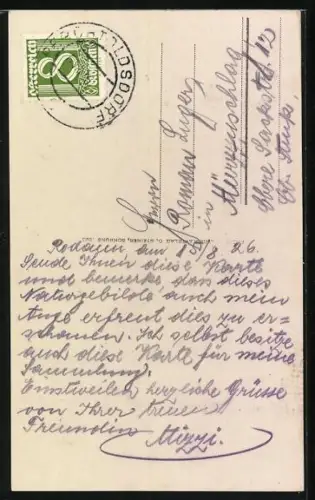 PERCHTOLDSDORF
Österreich
8
Groschen
Herrn
Roman Luger
in
Mürzzuschlag
Obere Sackstr. 12
Rodaun, am 15/8. 26.
Sende Ihnen diese Karte
und bemerke, das dieses
Naturgebilde auch mein
Auge erfreut dies zu er-
schauen. Ich selbst besitze
auch diese Karte für meine
Sammlung.
Einstweilen herzliche Grüsse
von Ihrer treuen
Freundin
Mizzi.